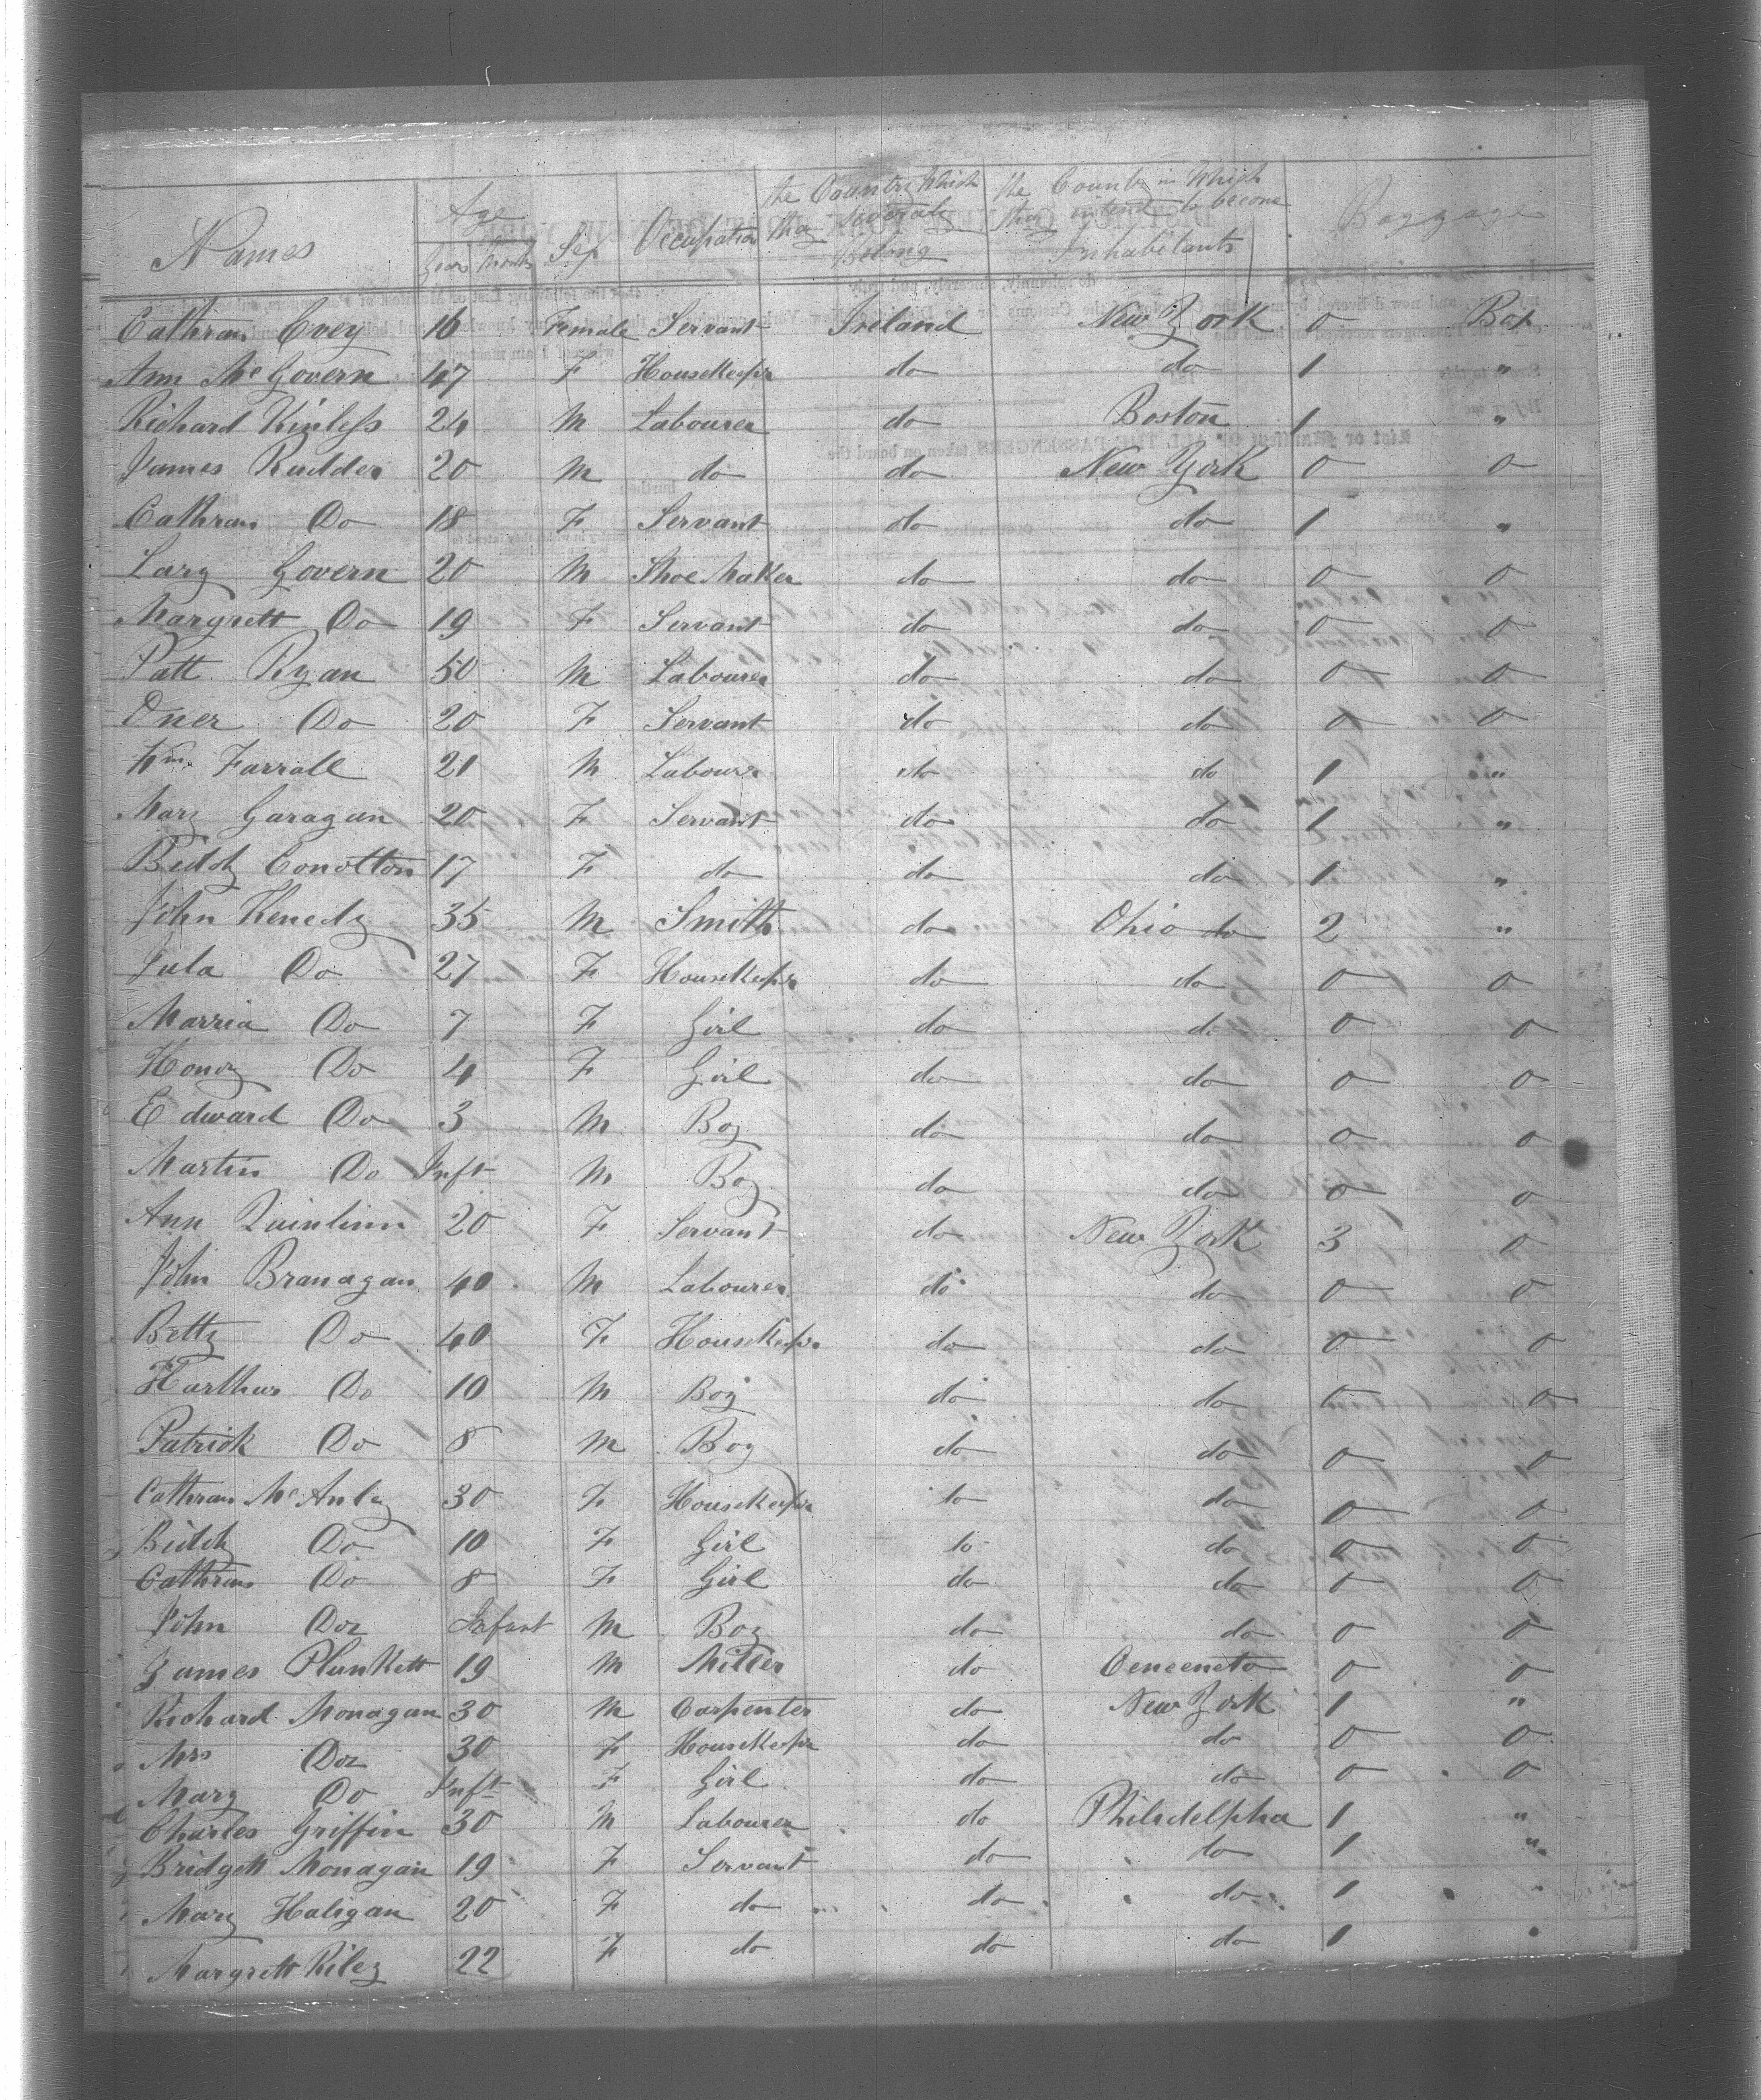 Names Age Years Months Sex Occupation the Country Which they severaly Belong the County in Which they intend to become Inhabetants Baggage
Cathran Evey 16 Female Servant Ireland New York 0 Box
Ann Mc Govern 47 F Housekeepr do do 1 "
Richard Kinless 24 M Labourer do Boston 1 "
James Rudder 20 M do do New York 0 0
Cathran Do 18 F Servant do do 1 "
Lary Govern 20 M Shoe Maker do do 0 0
Margrett Do 19 F Servant do do 0 0
Patt Ryan 50 M Labourer do do 0 0
Oner Do 20 F Servant do do 0 0
Wm. Farrall 21 M Labourer do do 1 "
Mary Garagan 20 F Servant do do 1 "
Biddy Conotton 17 F do do do 1 "
John Kenedy 35 M Smith do Ohio do 2 "
Jula Do 27 F Housekeepr do do 0 0
Marria Do 7 F Girl do do 0 0
Honoy Do 4 F Girl do do 0 0
Edward Do 3 M Boy do do 0 0
Martin Do Inft M Boy do do 0 0
Ann Quinlinn 20 F Servant do New York 3 0
John Branagan 40 M Labourer do do 0 0
Betty Do 40 F Housekeepr do do 0 0
Harthur Do 10 M Boy do do 0 0
Patrick Do 8 M Boy do do 0 0
Cathran Mc Anly 30 F Housekeepr do do 0 0
Biddy Do 10 F Girl do do 0 0
Cathran Do 8 F Girl do do 0 0
John Do Infant M Boy do do 0 0
James Plunkett 19 M Miller do Cenceneto 0 0
Richard Monagan 30 M Carpenter do New York 1 "
Mrs Do 30 F Housekeepr do do 0 0
Mary Do Inft F Girl do do 0 0
Charles Griffin 30 M Labourer do Philidelpha 1 "
Bridgett Monagan 19 F Servant do do 1 "
Mary Haligan 20 F do do do 1 "
Margrett Riley 22 F do do do 1 "